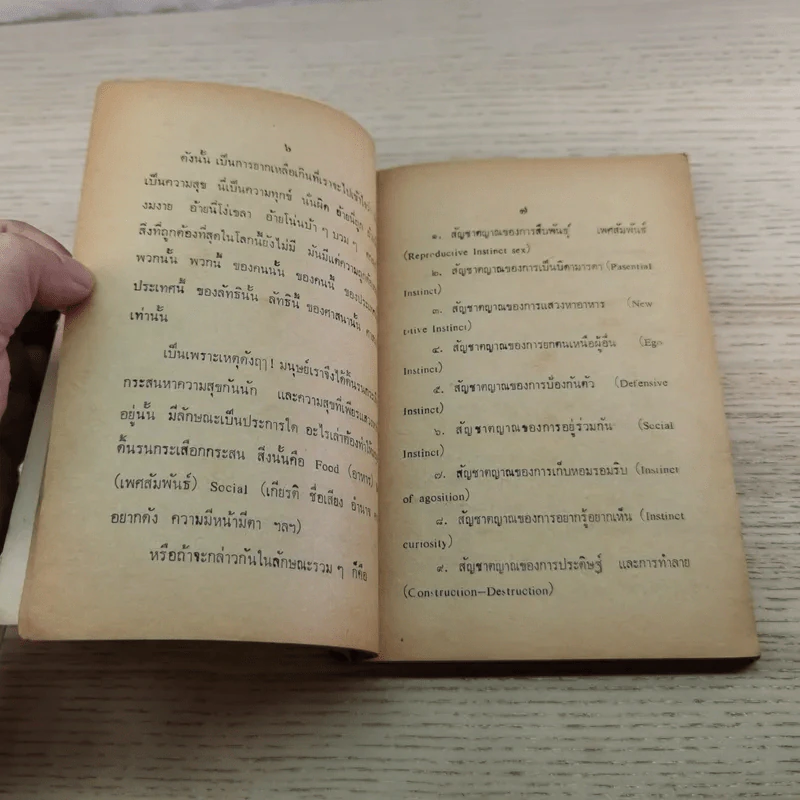 ๖
ดังนั้น เป็นการยากเหลือเกินที่เราจะไปเข้าใจว่า
เป็นความสุข นี่เป็นความทุกข์ นั่นผิด อ้ายนี่ถูก
งมงาย อ้ายนี่โง่เขลา อ้ายโน่นบ้า ๆ บวม ๆ
สิ่งที่ถูกต้องที่สุดในโลกนี้ยังไม่มี มันมีแต่ความถูกต้อง
พวกนั้น พวกนี้ ของคนนั้น ของคนนี้
ประเทศนี้ ของลัทธินั้น ลัทธินี้ ของศาสนานั้น
เท่านั้น
เป็นเพราะเหตุดังฤๅ! มนุษย์เราจึงได้ดิ้นรน
กระสนหาความสุขกันนัก และความสุขที่เพียร
อยู่นั้น มีลักษณะเป็นประการใด อะไรเล่าต้องทำให้
ดิ้นรนกระเสือกกระสน สิ่งนั้นคือ Food (อาหาร)
(เพศสัมพันธ์) Social (เกียรติ ชื่อเสียง อำนาจ
อยากดัง ความมีหน้ามีตา ฯลฯ)
หรือถ้าจะกล่าวกันในลักษณะรวม ๆ ก็คือ
๗
๑. สัญชาตญาณของการสืบพันธุ์ เพศสัมพันธ์
(Reproductive Instinct sex)
๒. สัญชาตญาณของการเป็นบิดามารดา (Pasential
Instinct)
๓. สัญชาตญาณของการแสวงหาอาหาร (New
Instinct)
๔. สัญชาตญาณของการยกตนเหนือผู้อื่น (Ego
Instinct)
๕. สัญชาตญาณของการป้องกันตัว (Defensive
Instinct)
๖. สัญชาตญาณของการอยู่ร่วมกัน (Social
Instinct)
๗. สัญชาตญาณของการเก็บหอมรอมริบ (Instinct
of agosition)
๘. สัญชาตญาณของการอยากรู้อยากเห็น (Instinct
curiosity)
๙. สัญชาตญาณของการประดิษฐ์ และการทำลาย
(Construction—Destruction)